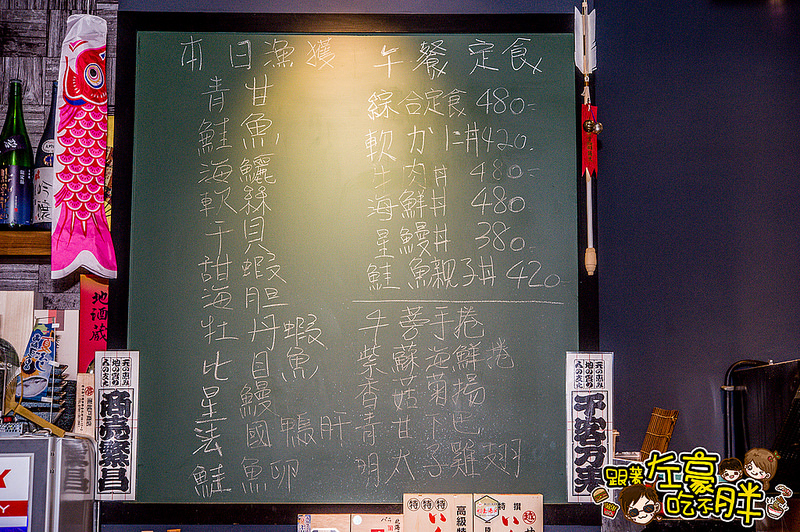 本日漁獲
青甘
鮭魚
海鱺
軟絲
干貝
甜蝦
海胆
牡丹蝦
比目魚
星鰻
法國鴨肝
鮭魚卵
午餐定食
綜合定食 480-
軟かに丼 420-
牛肉丼 480-
海鮮丼 480
星鰻丼 380-
鮭魚親子丼 420-
牛蒡手捲
紫蘇海鮮捲
香菇菊揚
青甘下巴
明太子雞翅
地酒蔵
商売繁昌
千客万来
特特特
高級
特撰
跟著左豪吃不胖